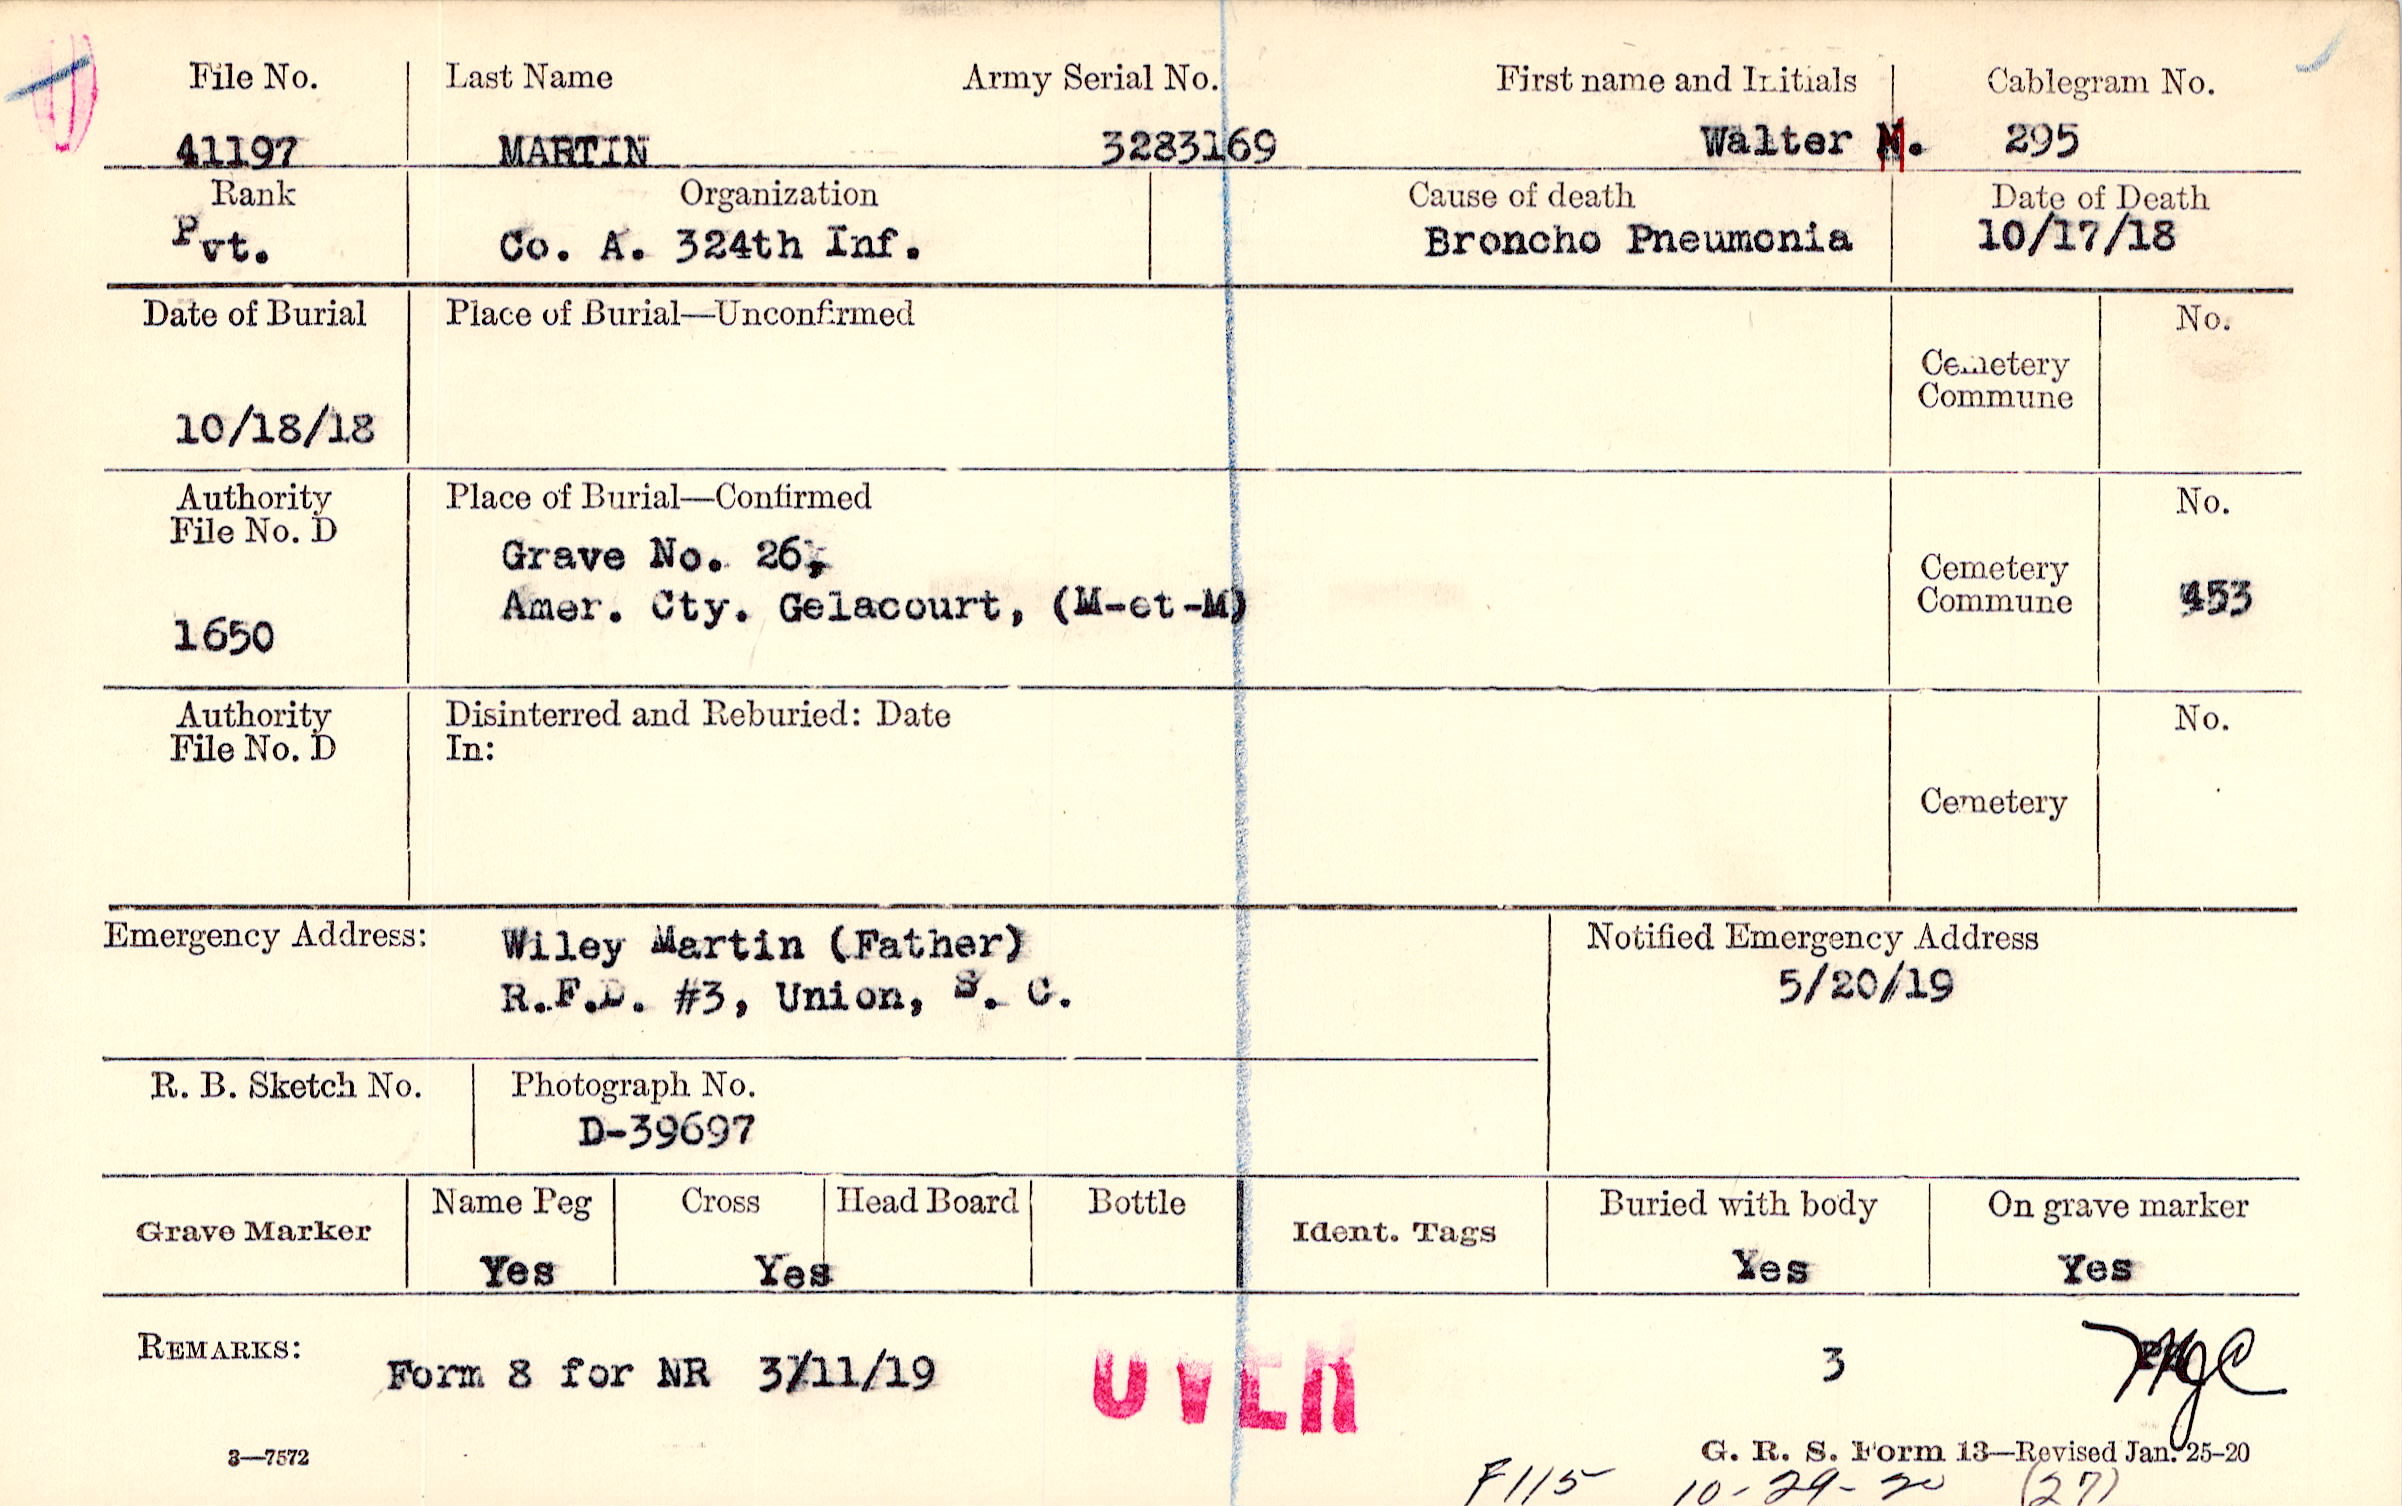 File No. Last Name Army Serial No. First name and Initials Cablegram No.
41197 MARTIN 3283169 Walter M. 295
Rank Organization Cause of death Date of Death
Pvt. Co. A. 324th Inf. Broncho Pneumonia 10/17/18
Date of Burial Place of Burial—Unconfirmed No.
Cemetery
Commune
10/18/18
Authority Place of Burial—Confirmed No.
File No. D
Grave No. 26,
Cemetery
Amer. Cty. Gelacourt, (M-et-M) Commune 453
1650
Authority Disinterred and Reburied: Date No.
File No. D In:
Cemetery
Emergency Address: Wiley Martin (Father) Notified Emergency Address
R.F.D. #3, Union, S. C. 5/20/19
R. B. Sketch No. Photograph No.
D-39697
Grave Marker Name Peg Cross Head Board Bottle Ident. Tags Buried with body On grave marker
Yes Yes Yes Yes
REMARKS: Form 8 for NR 3/11/19 OVER 3
3—7572 G. R. S. Form 13—Revised Jan. 25-20
F115 10-29-20 (27)